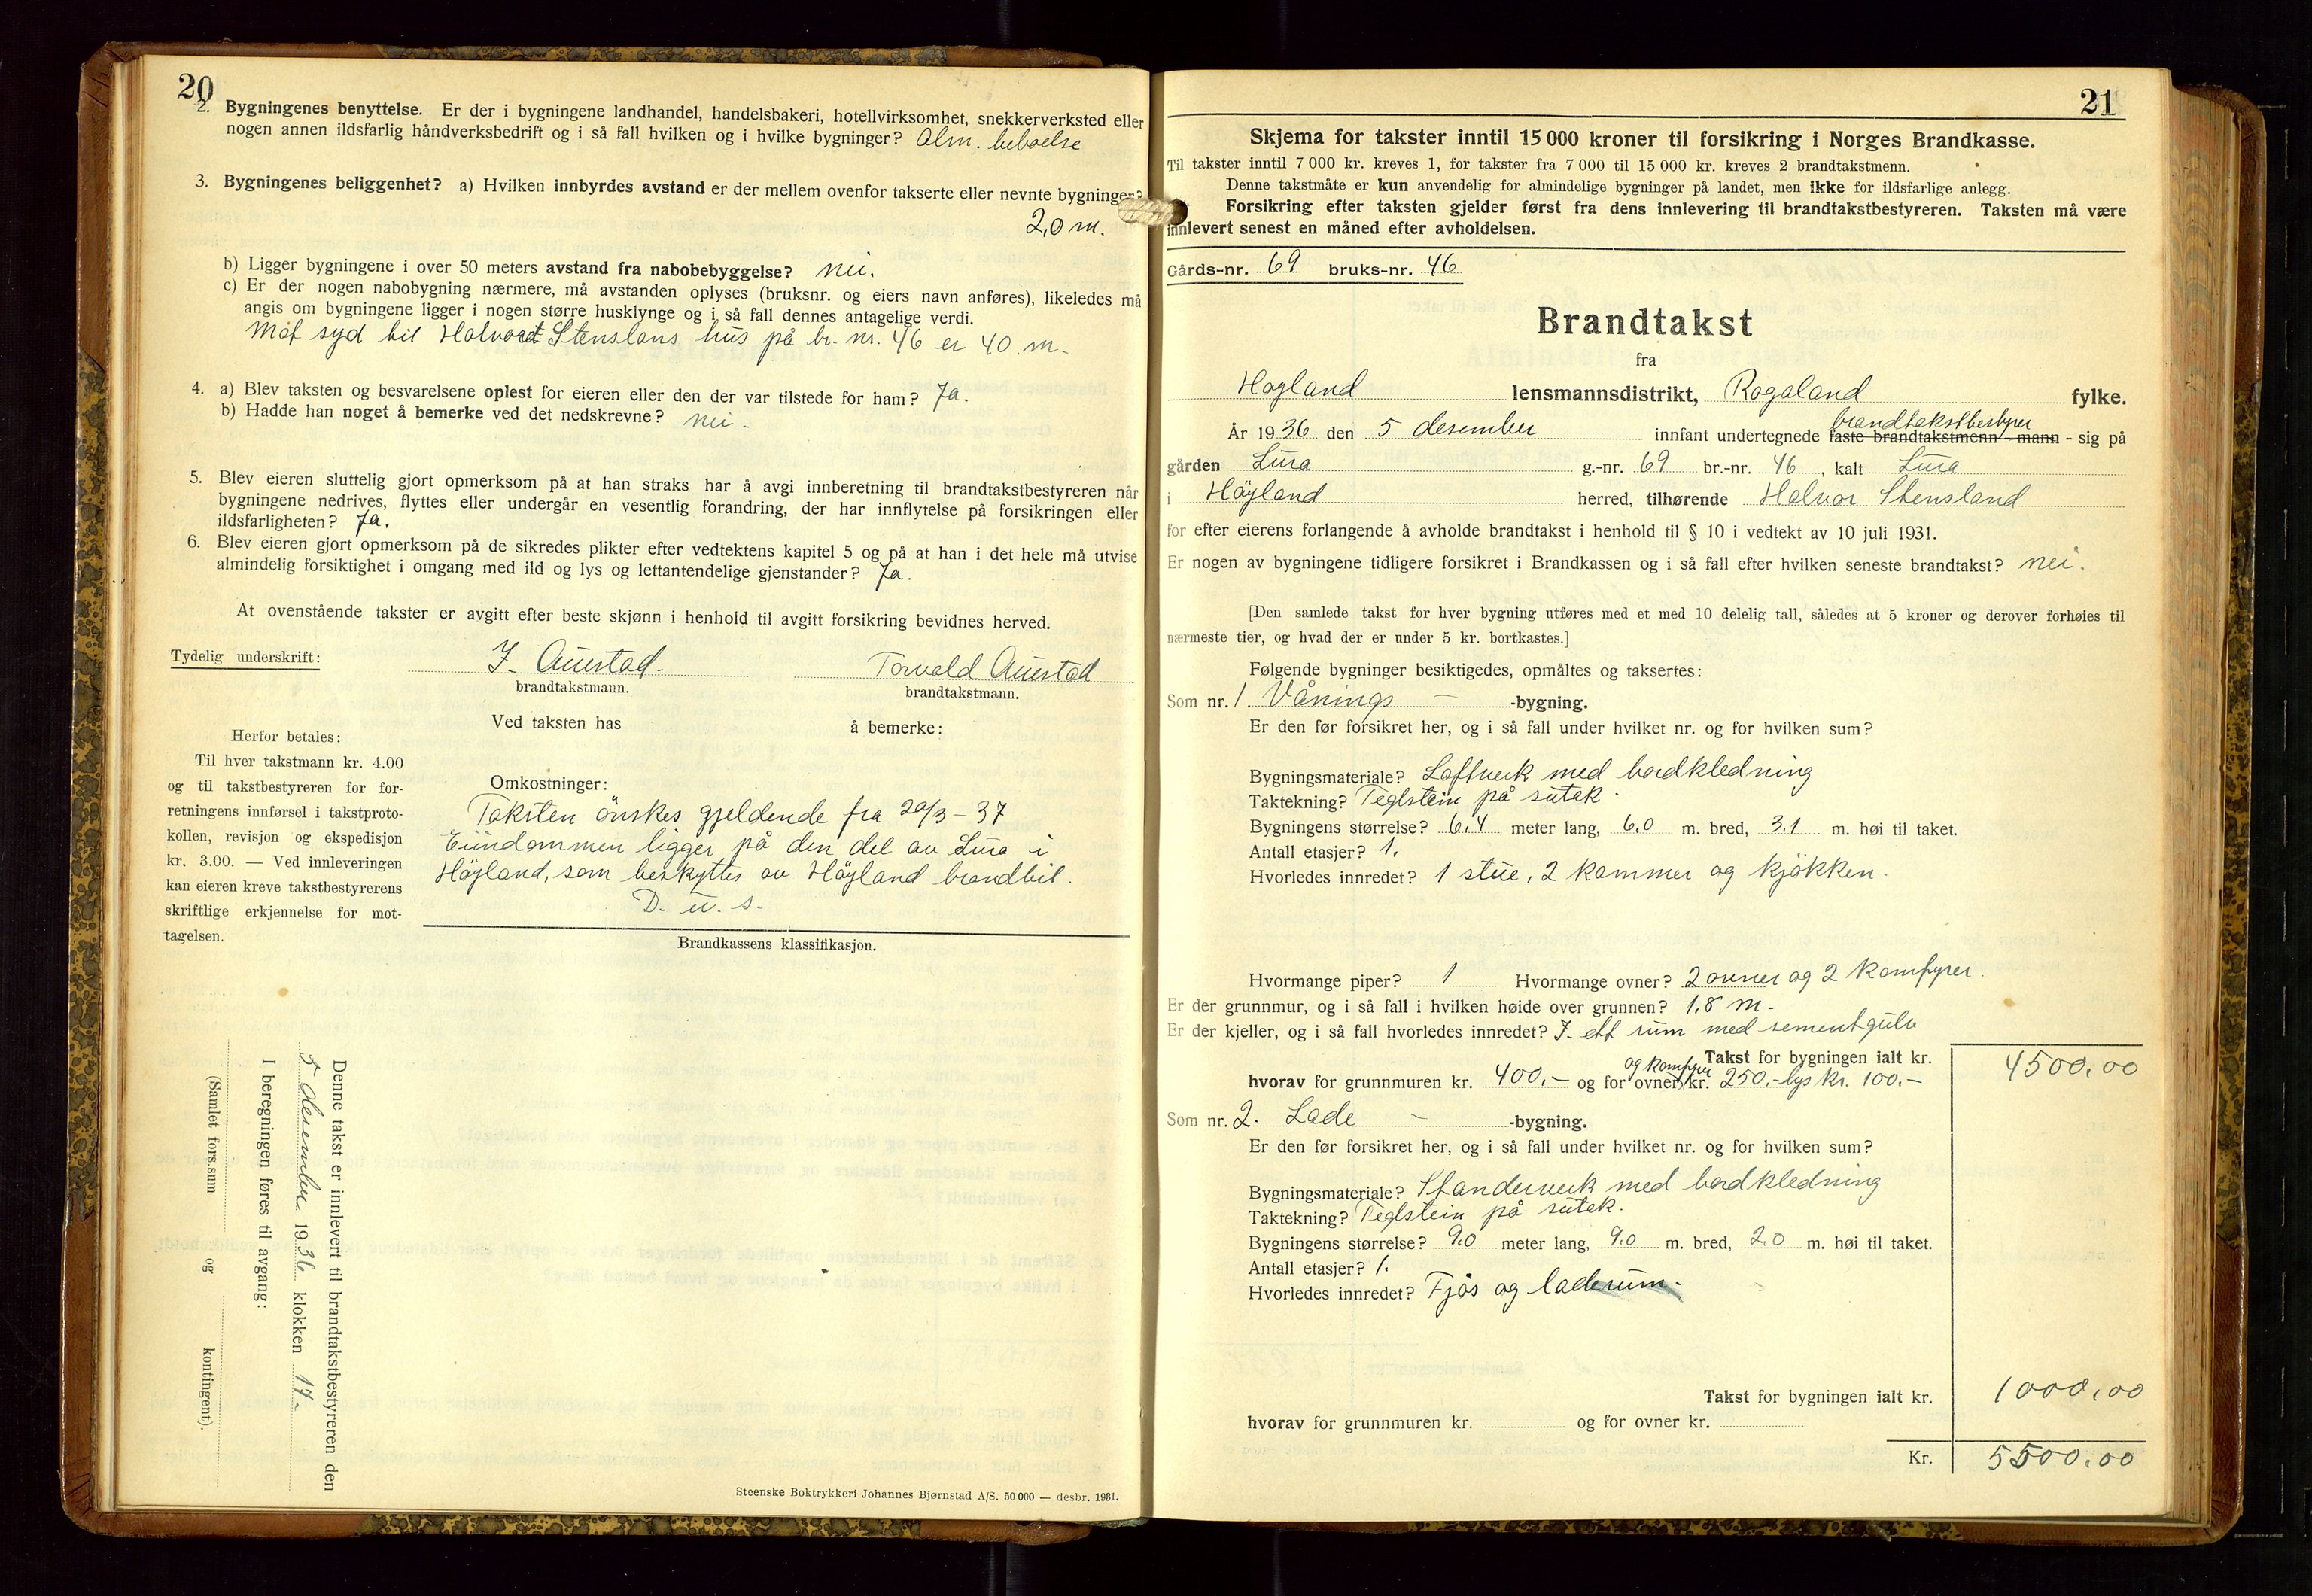 20
2. Bygningenes benyttelse. Er der i bygningene landhandel, handelsbakeri, hotellvirksomhet, snekkerverksted eller
nogen annen ildsfarlig håndverksbedrift og i så fall hvilken og i hvilke bygninger? Alm. beboelse
3. Bygningenes beliggenhet? a) Hvilken innbyrdes avstand er der mellem ovenfor takserte eller nevnte bygninger?
2,0 m.
b) Ligger bygningene i over 50 meters avstand fra nabobebyggelse? nei.
c) Er der nogen nabobygning nærmere, må avstanden oplyses (bruksnr. og eiers navn anføres), likeledes må
angis om bygningene ligger i nogen større husklynge og i så fall dennes antagelige verdi.
Mot syd til Halvord Stenslans hus på br. nr. 46 er 40 m.
4. a) Blev taksten og besvarelsene oplest for eieren eller den der var tilstede for ham? Ja.
b) Hadde han noget å bemerke ved det nedskrevne? nei.
5. Blev eieren sluttelig gjort opmerksom på at han straks har å avgi innberetning til brandtakstbestyreren når
bygningene nedrives, flyttes eller undergår en vesentlig forandring, der har innflytelse på forsikringen eller
ildsfarligheten? Ja.
6. Blev eieren gjort opmerksom på de sikredes plikter efter vedtektens kapitel 5 og på at han i det hele må utvise
almindelig forsiktighet i omgang med ild og lys og lettantendelige gjenstander? Ja.
At ovenstående takster er avgitt efter beste skjønn i henhold til avgitt forsikring bevidnes herved.
Tydelig underskrift: J. Auestad. Torvald Auestad
brandtakstmann. brandtakstmann.
Ved taksten has å bemerke:
Herfor betales:
Til hver takstmann kr. 4.00
og til takstbestyreren for for-
retningens innførsel i takstproto-
kollen, revisjon og ekspedisjon
kr. 3.00. — Ved innleveringen
kan eieren kreve takstbestyrerens
skriftlige erkjennelse for mot-
tagelsen.
Omkostninger:
Taksten önskes gjeldende fra 20/3-37
Eiendommen ligger på den del av Lura i
Höyland, som beskyttes av Höyland brandbil.
D. u. s.
Brandkassens klassifikasjon.
Denne takst er innlevert til brandtakstbestyreren den
5 desember 1936 klokken 17.
I beregningen føres til avgang:
(Samlet fors.sum og kontingent).
Steenske Boktrykkeri Johannes Bjørnstad A/S. 50 000 — desbr. 1931.
21
Skjema for takster inntil 15 000 kroner til forsikring i Norges Brandkasse.
Til takster inntil 7 000 kr. kreves 1, for takster fra 7 000 til 15 000 kr. kreves 2 brandtakstmenn.
Denne takstmåte er kun anvendelig for almindelige bygninger på landet, men ikke for ildsfarlige anlegg.
Forsikring efter taksten gjelder først fra dens innlevering til brandtakstbestyreren. Taksten må være
innlevert senest en måned efter avholdelsen.
Gårds-nr. 69 bruks-nr. 46
Brandtakst
fra
Hogland lensmannsdistrikt, Rogaland fylke.
brandtakstbestyrer
År 1936 den 5 desember innfant undertegnede faste brandtakstmenn - mann - sig på
gården Lura g.-nr. 69 br.-nr. 46, kalt Lura
i Höyland herred, tilhørende Halvor Stensland
for efter eierens forlangende å avholde brandtakst i henhold til § 10 i vedtekt av 10 juli 1931.
Er nogen av bygningene tidligere forsikret i Brandkassen og i så fall efter hvilken seneste brandtakst? nei.
[Den samlede takst for hver bygning utføres med et med 10 delelig tall, således at 5 kroner og derover forhøies til
nærmeste tier, og hvad der er under 5 kr. bortkastes.]
Følgende bygninger besiktigedes, opmåltes og taksertes:
Som nr. 1. Vånings - -bygning.
Er den før forsikret her, og i så fall under hvilket nr. og for hvilken sum?
Bygningsmateriale? Loftverk med bordkledning
Taktekning? Teglstein på sutak.
Bygningens størrelse? 6.4 meter lang, 6.0 m. bred, 3.1 m. høi til taket.
Antall etasjer? 1.
Hvorledes innredet? 1 stue, 2 kammer og kjökken.
Hvormange piper? 1 Hvormange ovner? 2 ovner og 2 komfyrer.
Er der grunnmur, og i så fall i hvilken høide over grunnen? 1.8 m.
Er der kjeller, og i så fall hvorledes innredet? I ett rum med sementgulv
Takst for bygningen ialt kr. 4500.00
og komfyrer
hvorav for grunnmuren kr. 400.- og for ovner kr. 250.- lys kr. 100.-
Som nr. 2. Lade - -bygning.
Er den før forsikret her, og i så fall under hvilket nr. og for hvilken sum?
Bygningsmateriale? Standerverk med bordkledning
Taktekning? Teglstein på sutak.
Bygningens størrelse? 9.0 meter lang, 9.0 m. bred, 2.0 m. høi til taket.
Antall etasjer? 1.
Hvorledes innredet? Fjös og laderum.
Takst for bygningen ialt kr. 1000,00
hvorav for grunnmuren kr. og for ovner kr.
Kr. 5500.00